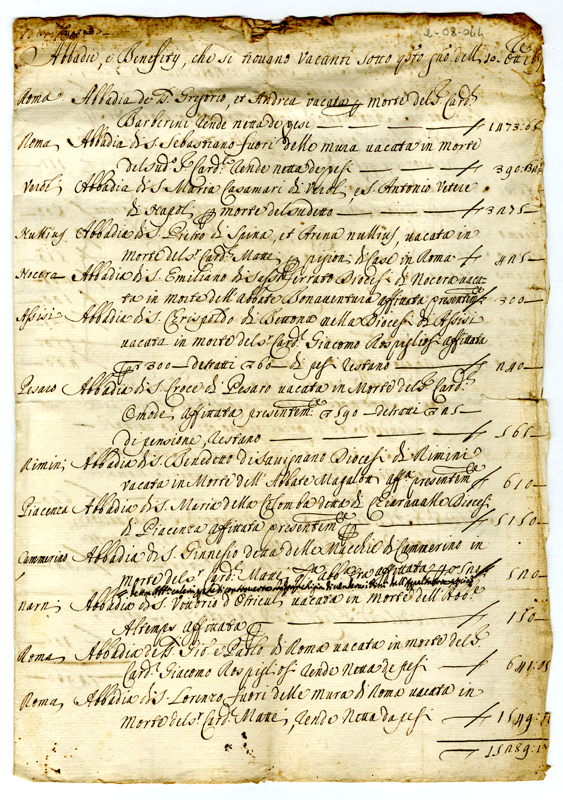 2-08-044
Abbadie, e Benefitÿ, che si trovano vacanti sotto
Roma Abbadia de S. Gregorio, et Andrea vacata p morte del S. Card.
Barberini rende netta de pesi — 1473:65
Roma Abbadia di S. Sebastiano fuori delle mura vacata in morte
del sud.º S. Card. rende netta de pesi — 390:
Verol. Abbadia di S. Maria Casamari di Verol. e S. Antonio Vetere
di Napol. p morte del sudetto — 3275
Nullius Abbadia di S. Pietro di Spina, et Arena nullius, vacata in
morte del S. Card. p pigion. di case in Roma — 425
Nocera Abbadia di S. Emiliano di Sassoferrato Diocesi di Nocera vaca-
ta in morte dell'abbate Bonaventura affittata presentem. — 300
Assisi Abbadia di S. Crispoldo di Bettona nella Diocesi di Assisi
vacata in morte del S. Card. Giacomo Rospigliosi affittata
300 detratti 60 di pesi restano — 240
Pesaro Abbadia di S. Croce di Pesaro vacata in Morte del S. Card.
Omodei affittata presentem. 590 detratti 25
di pensione, restano — 565
Rimini Abbadia di S. Benedetto di Savignano Diocesi di Rimini
vacata in Morte dell'Abbate Magalda aff. presentem. — 610
Piacenza Abbadia di S. Maria della Colomba detta di Chiaravalle Diocesi
di Piacenza affittata presentem. — 5150
Cammerino Abbadia di S. Ginnesio detta delle Macchie di Cammerino in
morte del S. Card. affittata — 520
Narni Abbadia di S. Vittorio d'Otricul. vacata in morte dell'Abb.
Altemps affittata — 150
Roma Abbadia de SS. Gio. e Paolo di Roma vacata in morte del S.
Card. Giacomo Rospigliosi rende netta de pesi — 641:05
Roma Abbadia di S. Lorenzo fuori delle mura di Roma vacata in
morte del S. Card. rende netta da pesi — 1549:
15289: